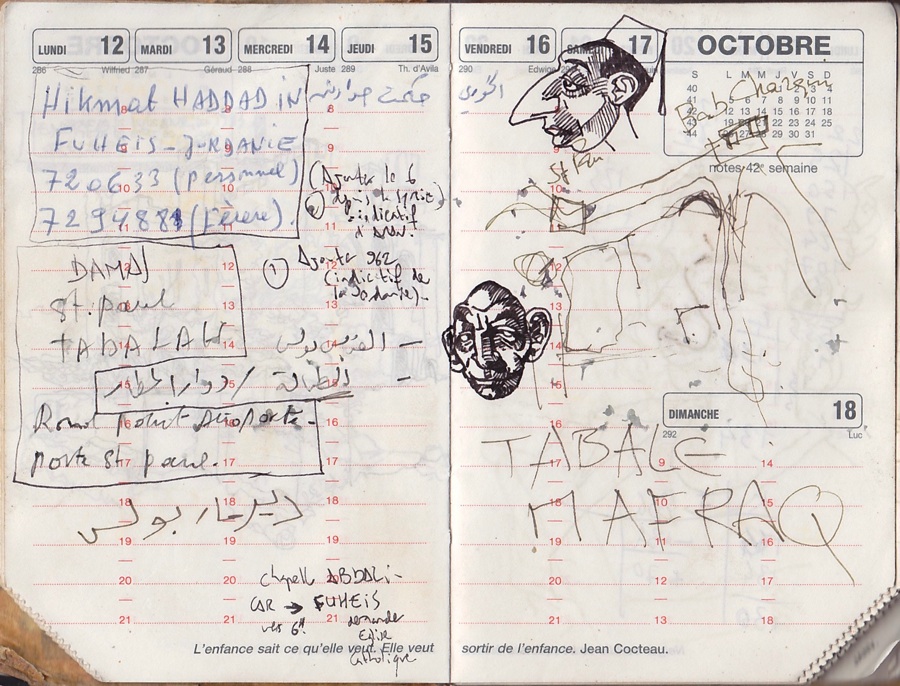 LUNDI 12 MARDI 13 MERCREDI 14 JEUDI 15
286 Wilfried 287 Géraud 288 Juste 289 Th. d'Avila
Hikmat HADDADIN حكمت حدادين
FUHEIS - JORDANIE
720633 (personnel)
7294881 (frère).
(Ajouter le 6
indicatif
d'AMM.
DAMAS
St. paul
TABALAH
1 Ajouter 962
(indicatif de
la Jordanie)-
القديس بولس -
الطبالة / دوار المطار -
Rond point Aéroporte-
porte St paul.
دير مار بولس
chapelle ABDALI-
CAR → FUHEIS
vers 6H
demander
Eglise
Catholique
8
9
10
11
12
13
14
15
16
17
18
19
20
21
L'enfance sait ce qu'elle veut. Elle veut
VENDREDI 16 SAMEDI 17 OCTOBRE
290 Edwige
S L M M J V S D
40 1 2 3 4
41 5 6 7 8 9 10 11
42 12 13 14 15 16 17 18
43 19 20 21 22 23 24 25
44 26 27 28 29 30 31
notes 42e semaine
Bab Charqui
DIMANCHE 18
292 Luc
TABALE
MAFRAQ
9 14
10 15
11 16
12 17
13 18
sortir de l'enfance. Jean Cocteau.